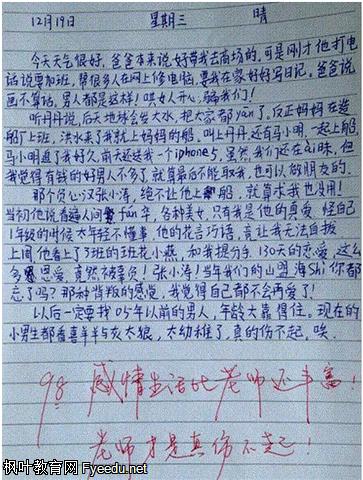 12月19日 星期三 晴
今天天气很好,爸爸本来说好带我去商场的。可是刚才他打电
话说要加班,帮很多人在网上修电脑,要我在家好好写日记。爸爸说
画不算话,男人都是这样!哄女人开心,骗我们!
听丹丹说,后天地球会发大水,把大家都yan了。反正妈妈在造
船厂上班,洪水来了我就上妈妈的船,叫上丹丹还有马小明,一起上船
马小明追了我好久,南大还送我一个iphone5,虽然我们还在i咪,但
我觉得有钱的好男人不多了,就算最后不能取我,也可以做朋友的。
那个负心汉张小涛,绝不让他上船,就算丢我也没用!
当初他说看遍人间繁fan华,各种美女,只有我是他的真爱,怪自己
1年级的时候太年轻不懂事,他的花言巧语,竟让我无法自拔
上周他看上了3班的班花小燕,和我提分手,130天的恋爱,这么
多恩爱,竟然被辜负!张小涛!当年我们的山盟海Shi你都
忘了吗?那种背叛的感觉,我觉得自己都不会再爱了!
以后一定要找05年以前的男人,年龄大靠得住。现在的
小男生都看喜羊羊与灰太狼,太幼稚了,真的伤不起,唉。
98 感情生活比老师还丰富!
老师才是真伤不起!
枫叶教育网 Fyeedu.net